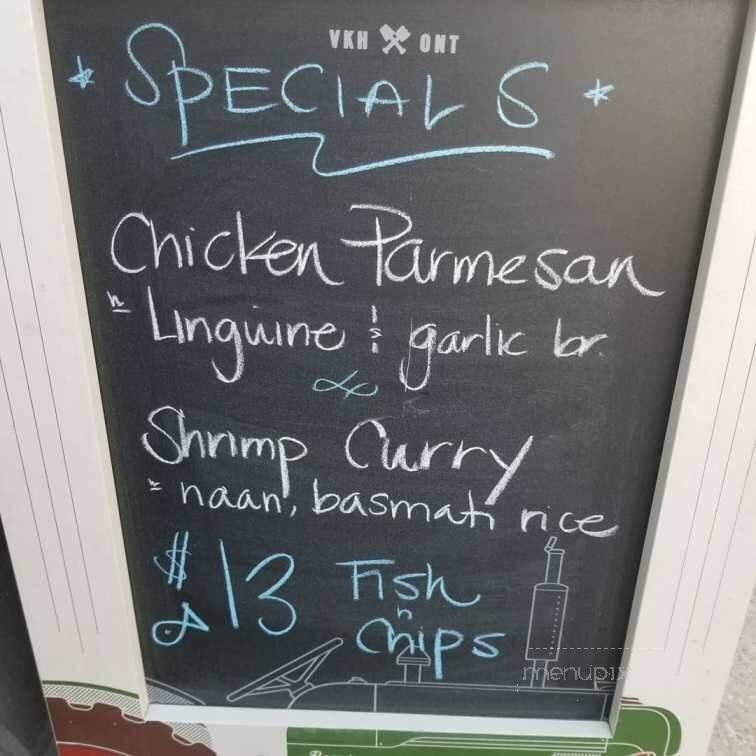 VKH ONT
* SPECIALS *
Chicken Parmesan
Linguine & garlic br.
Shrimp Curry
naan, basmati rice
$13 Fish
n
Chips
menupix